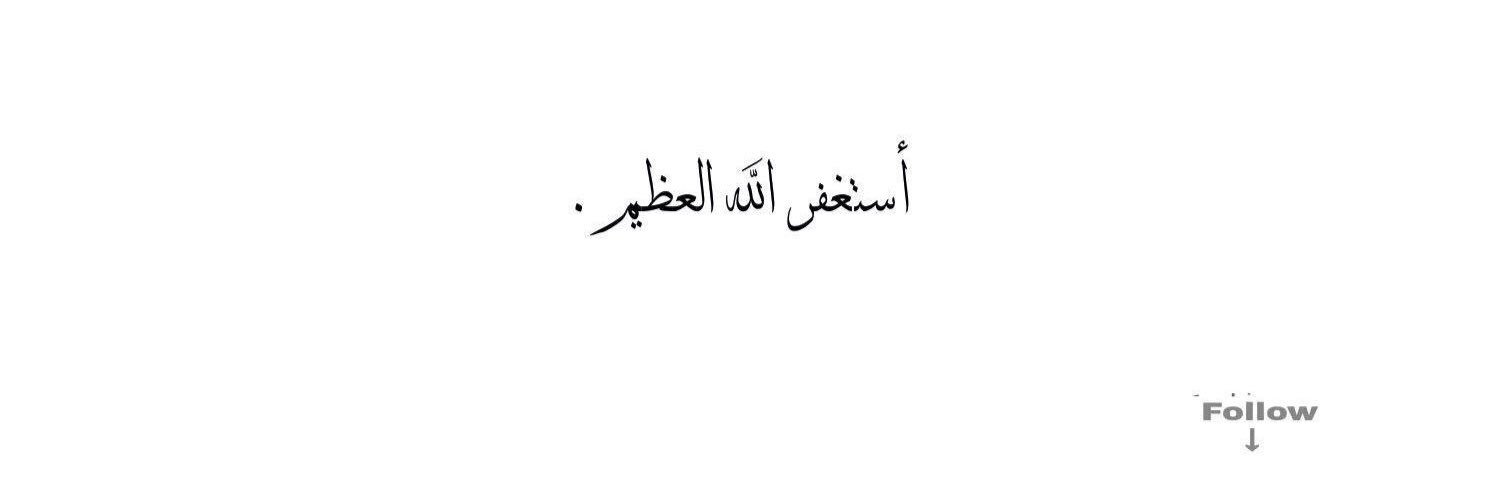 أستغفر الله العظيم .
Follow
↓